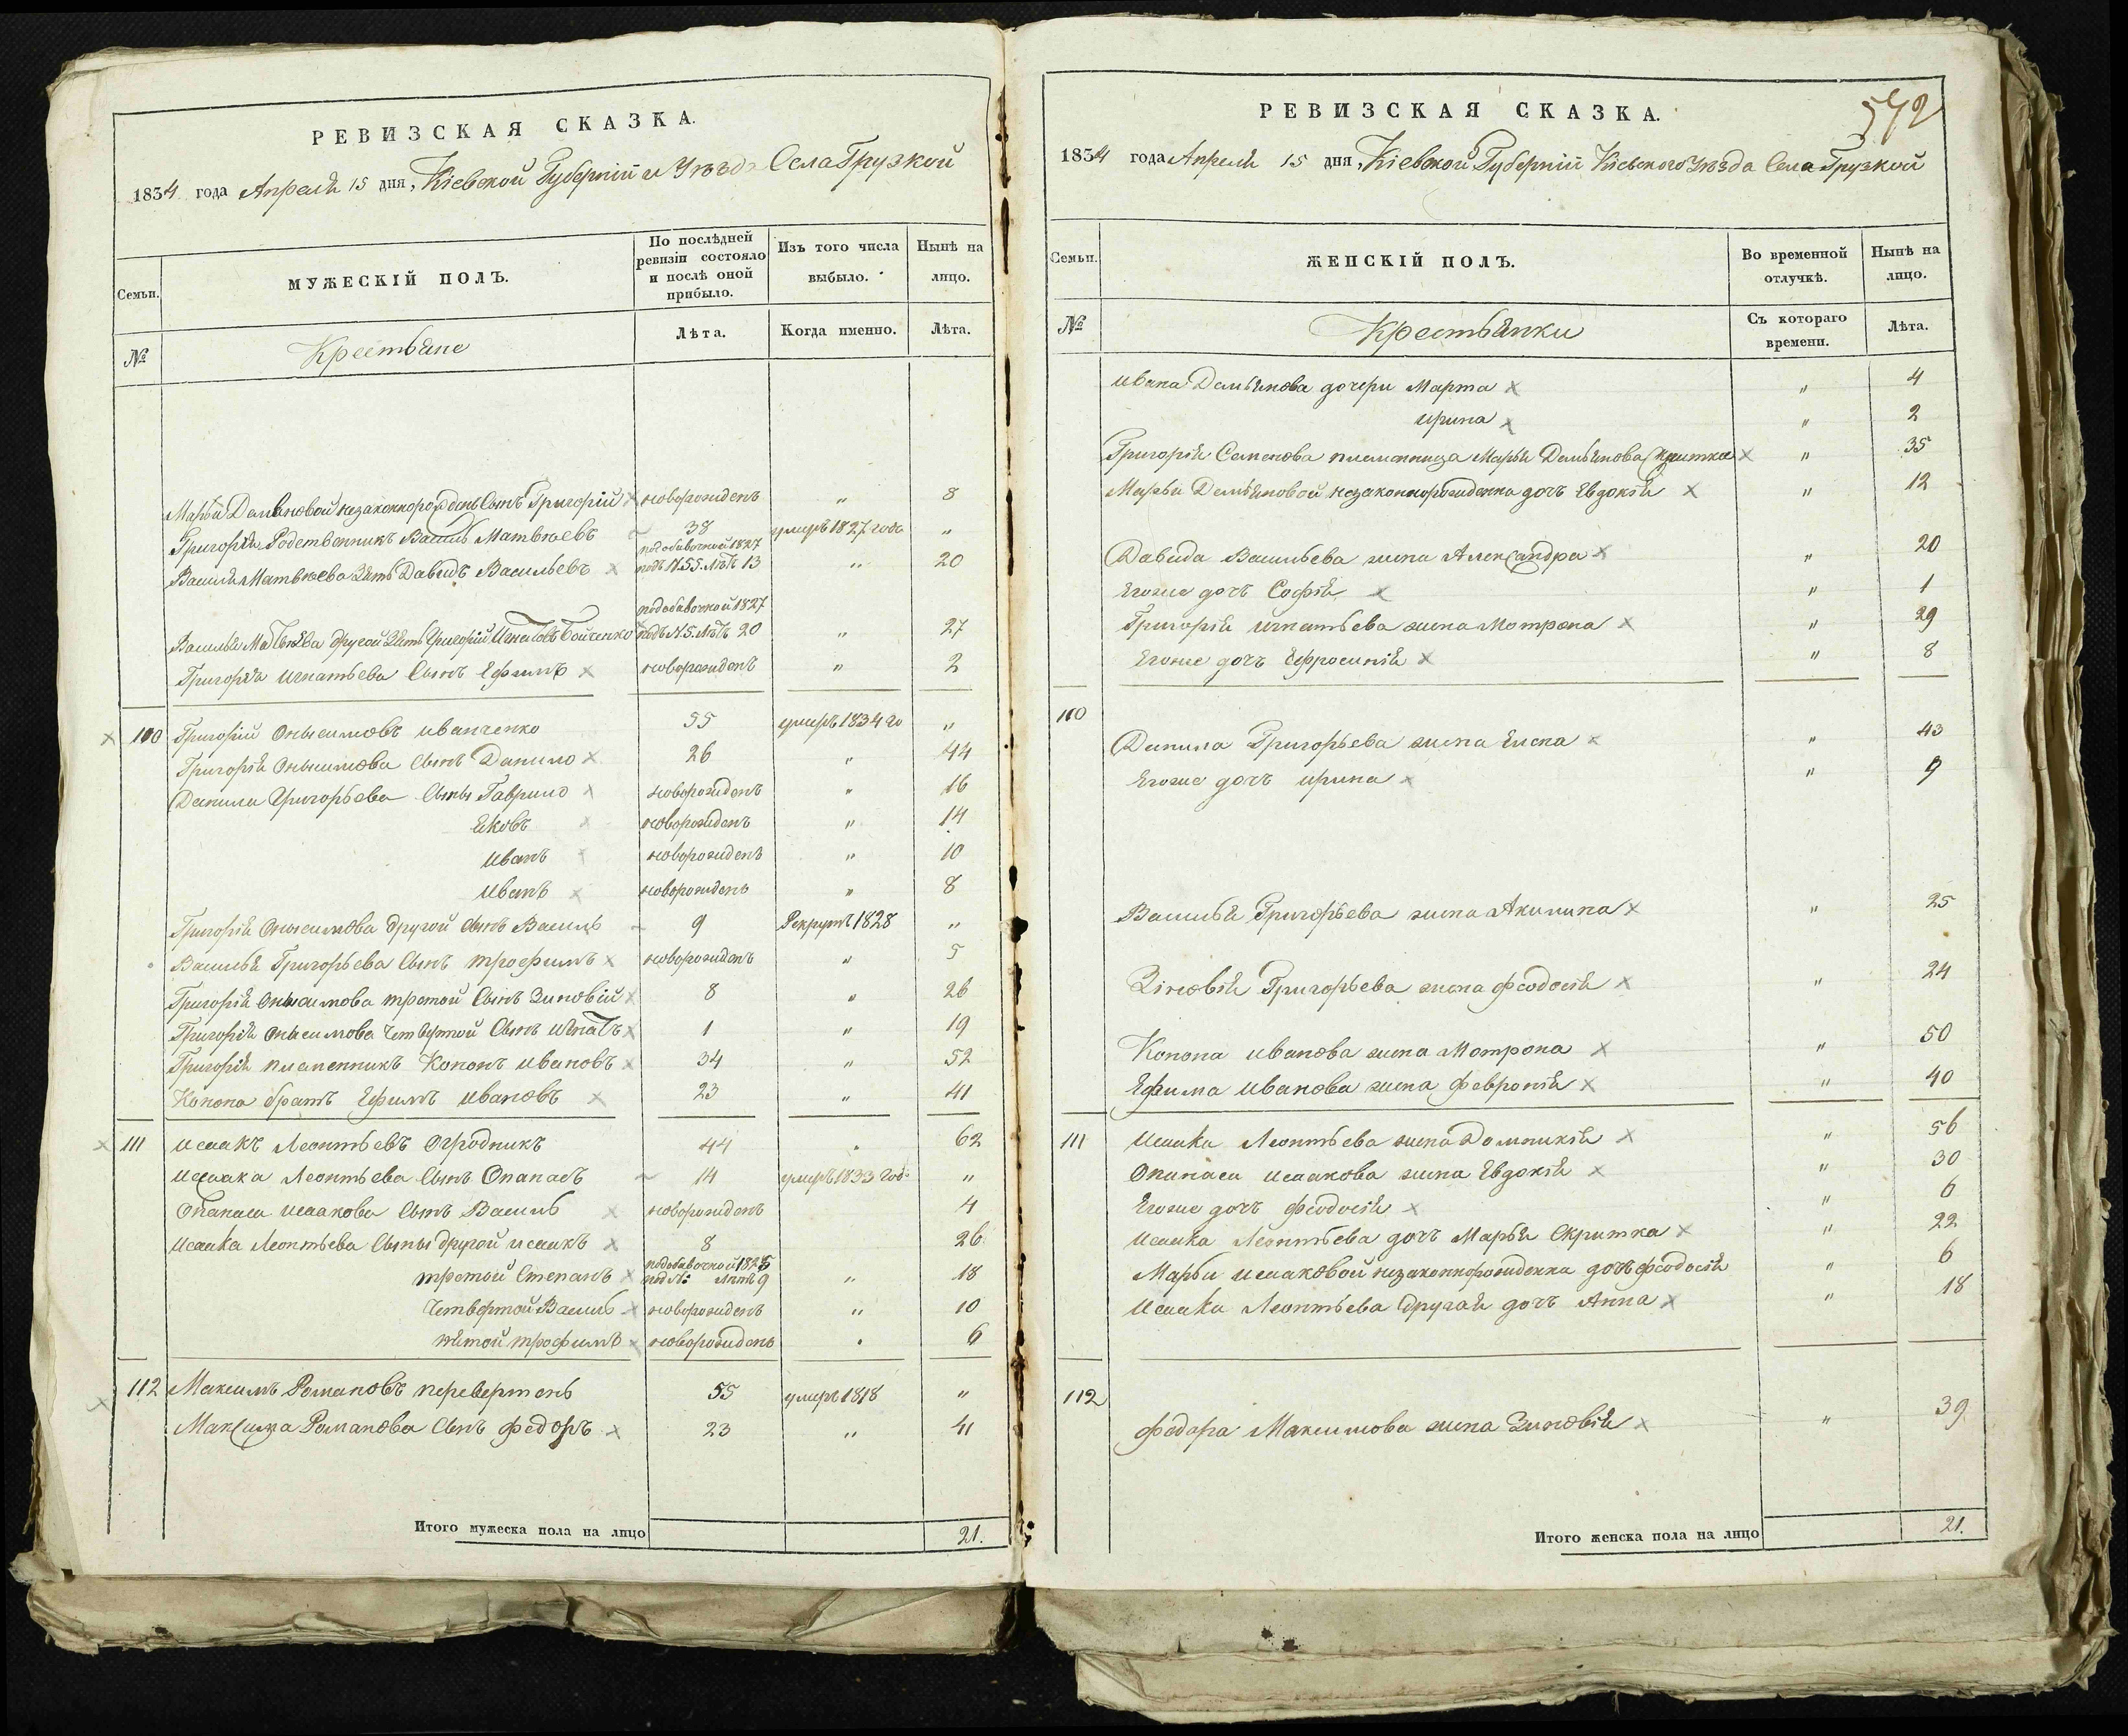 РЕВИЗСКАЯ СКАЗКА.
1834 года Апреля 15 дня, Кіевской Губерніи и Уезда Села Грузкой
Семьи.
МУЖЕСКІЙ ПОЛЪ.
По послѣдней ревизіи состояло и послѣ оной прибыло.
Изъ того числа выбыло.
Нынѣ на лицо.
№
Крестьяне
Лѣта.
Когда именно.
Лѣта.
Марьи Демьяновой незаконнорожденъ Сынъ Григорій новорожденъ " 8
Григорія Родственникъ Василь Матвѣевъ 38 умеръ 1827 года "
Василя Матвѣева Зять Давидъ Васильевъ подобавочной 1827 подъ N. 55. лѣтъ 13 " 20
Василья Матвѣева другой Зять Григорій Игнатовъ Бойченко подобавочной 1827 подъ N. 5. лѣтъ 20 " 27
Григорія Игнатьева Сынъ Ефимъ новорожденъ " 2
110 Григорій Онысимовъ Иванченко 55 умеръ 1834 го "
Григорія Онысимова Сынъ Данило 26 " 44
Данила Григорьева Сыны Гаврило новорожденъ " 16
Яковъ новорожденъ " 14
Иванъ новорожденъ " 10
Иванъ новорожденъ " 8
Григорія Онысимова другой Сынъ Василь 9 Рекрутъ 1828 "
Василья Григорьева Сынъ Трофимъ новорожденъ " 5
Григорія Онысимова третой Сынъ Зиновій 8 " 26
Григорія Онысимова Четвертой Сынъ Игнатъ 1 " 19
Григорія племенникъ Кононъ Ивановъ 34 " 52
Конона братъ Ефимъ Ивановъ 23 " 41
111 Исаакъ Леонтьевъ Огродникъ 44 " 62
Исаака Леонтьева Сынъ Опанасъ 14 умеръ 1833 год. "
Опанаса Исаакова Сынъ Василь новорожденъ 4
Исаака Леонтьева Сыны другой Исаакъ 8 26
третой Степанъ подобавочной 1825 подъ N: лѣтъ 9 " 18
Четвертой Василь новорожденъ " 10
пятой Трофимъ новорожденъ " 6
112 Максимъ Романовъ перевертень 55 умеръ 1818 "
Максима Романова Сынъ Федоръ 23 " 41
Итого мужеска пола на лицо 21.
572
РЕВИЗСКАЯ СКАЗКА.
1834 года Апреля 15 дня, Кіевской Губерніи Кіевского Уезда Села Грузкой
Семьи.
ЖЕНСКІЙ ПОЛЪ.
Во временной отлучкѣ.
Нынѣ на лицо.
№
Крестьянки
Съ котораго времени.
Лѣта.
Ивана Демьянова дочери Марта " 4
Ирина " 2
Григорія Семенова племянница Марья Демьянова Скритка " 35
Марьи Демьяновой незаконнорожденна дочъ Евдокія " 12
Давида Васильева жена Александра " 20
Егоже дочъ Софія " 1
Григорія Игнатьева жена Мотрона " 29
Егоже дочъ Ефросинія " 8
110
Данила Григорьева жена Елена " 43
Егоже дочъ Ирина " 9
Василья Григорьева жена Акилина " 25
Зіновія Григорьева жена Феодосія " 24
Конона Иванова жена Мотрона " 50
Ефима Иванова жена Февронія " 40
111 Исаака Леонтьева жена Домникія " 56
Опанаса Исаакова жена Евдокія " 30
Егоже дочъ Феодосія " 6
Исаака Леонтьева дочъ Марья Скритка " 22
Марьи Исааковой незаконнорожденна дочъ Феодосія " 6
Исаака Леонтьева другая дочъ Анна " 18
112
Федора Максимова жена Зиновія " 39
Итого женска пола на лицо 21.